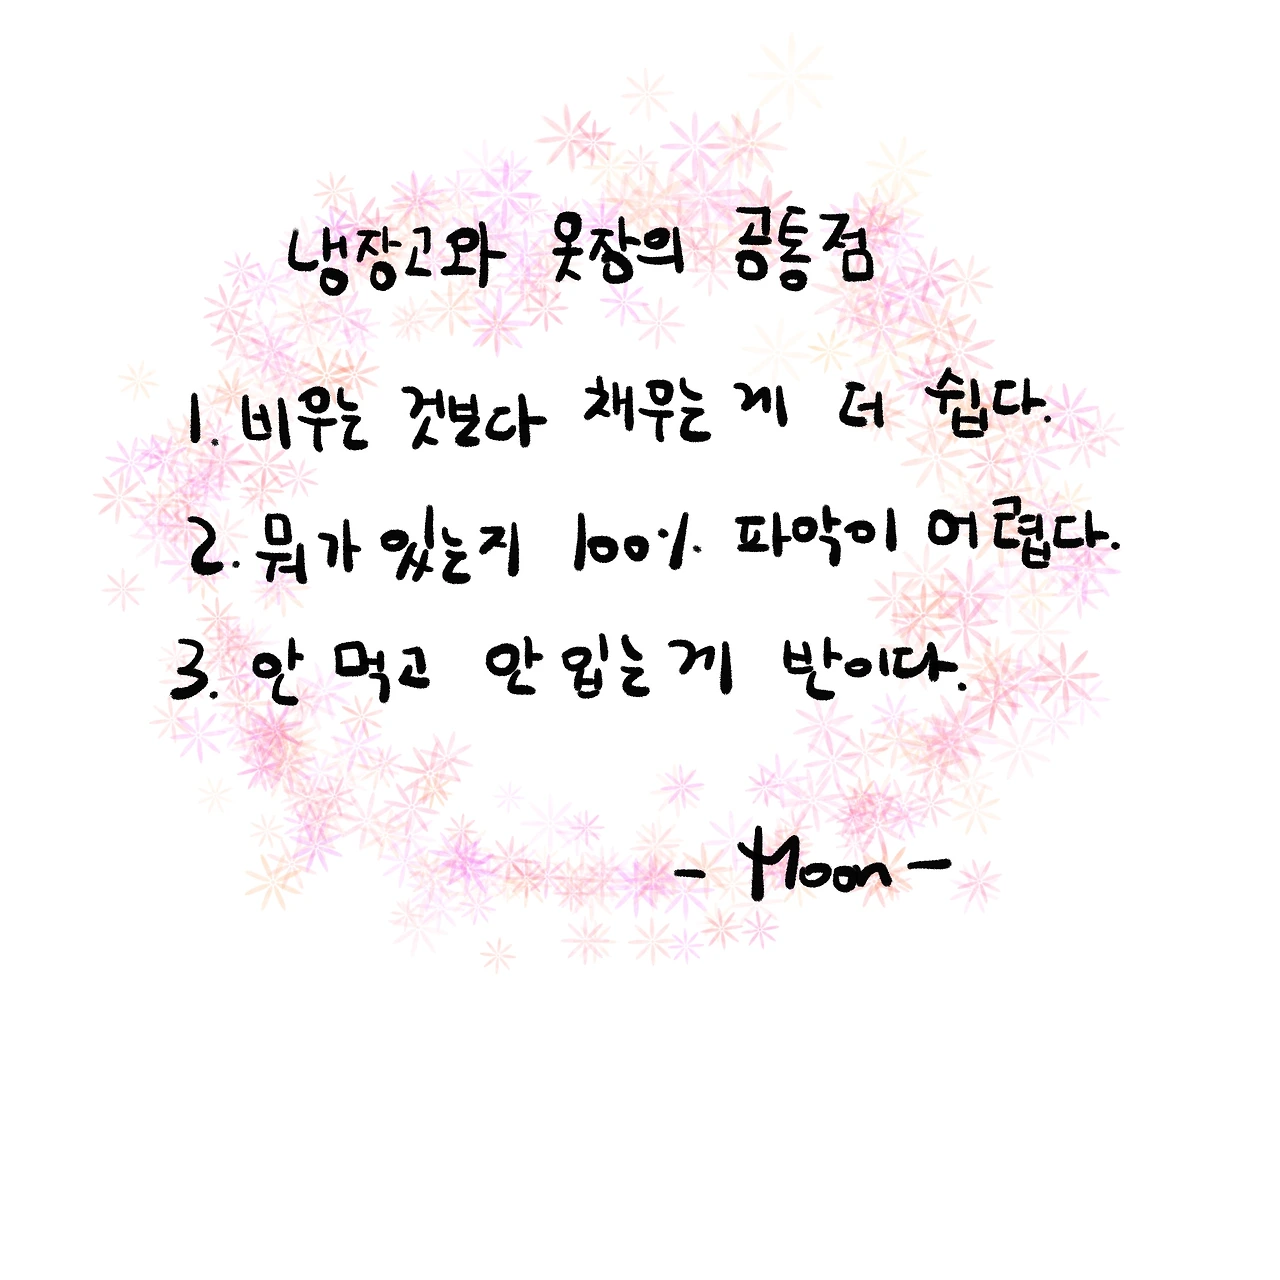 냉장고와 옷장의 공통점
1. 비우는 것보다 채우는 게 더 쉽다.
2. 뭐가 있는지 100% 파악이 어렵다.
3. 안 먹고 안 입는 게 반이다.
- Moon -